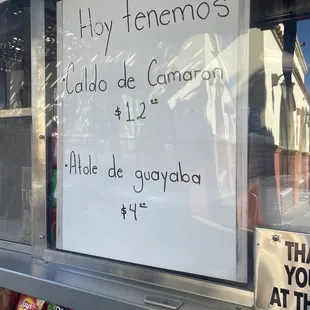 Hoy tenemos
Caldo de Camaron
$12.00
• Atole de guayaba
$4.00
THA
YOU
AT TH